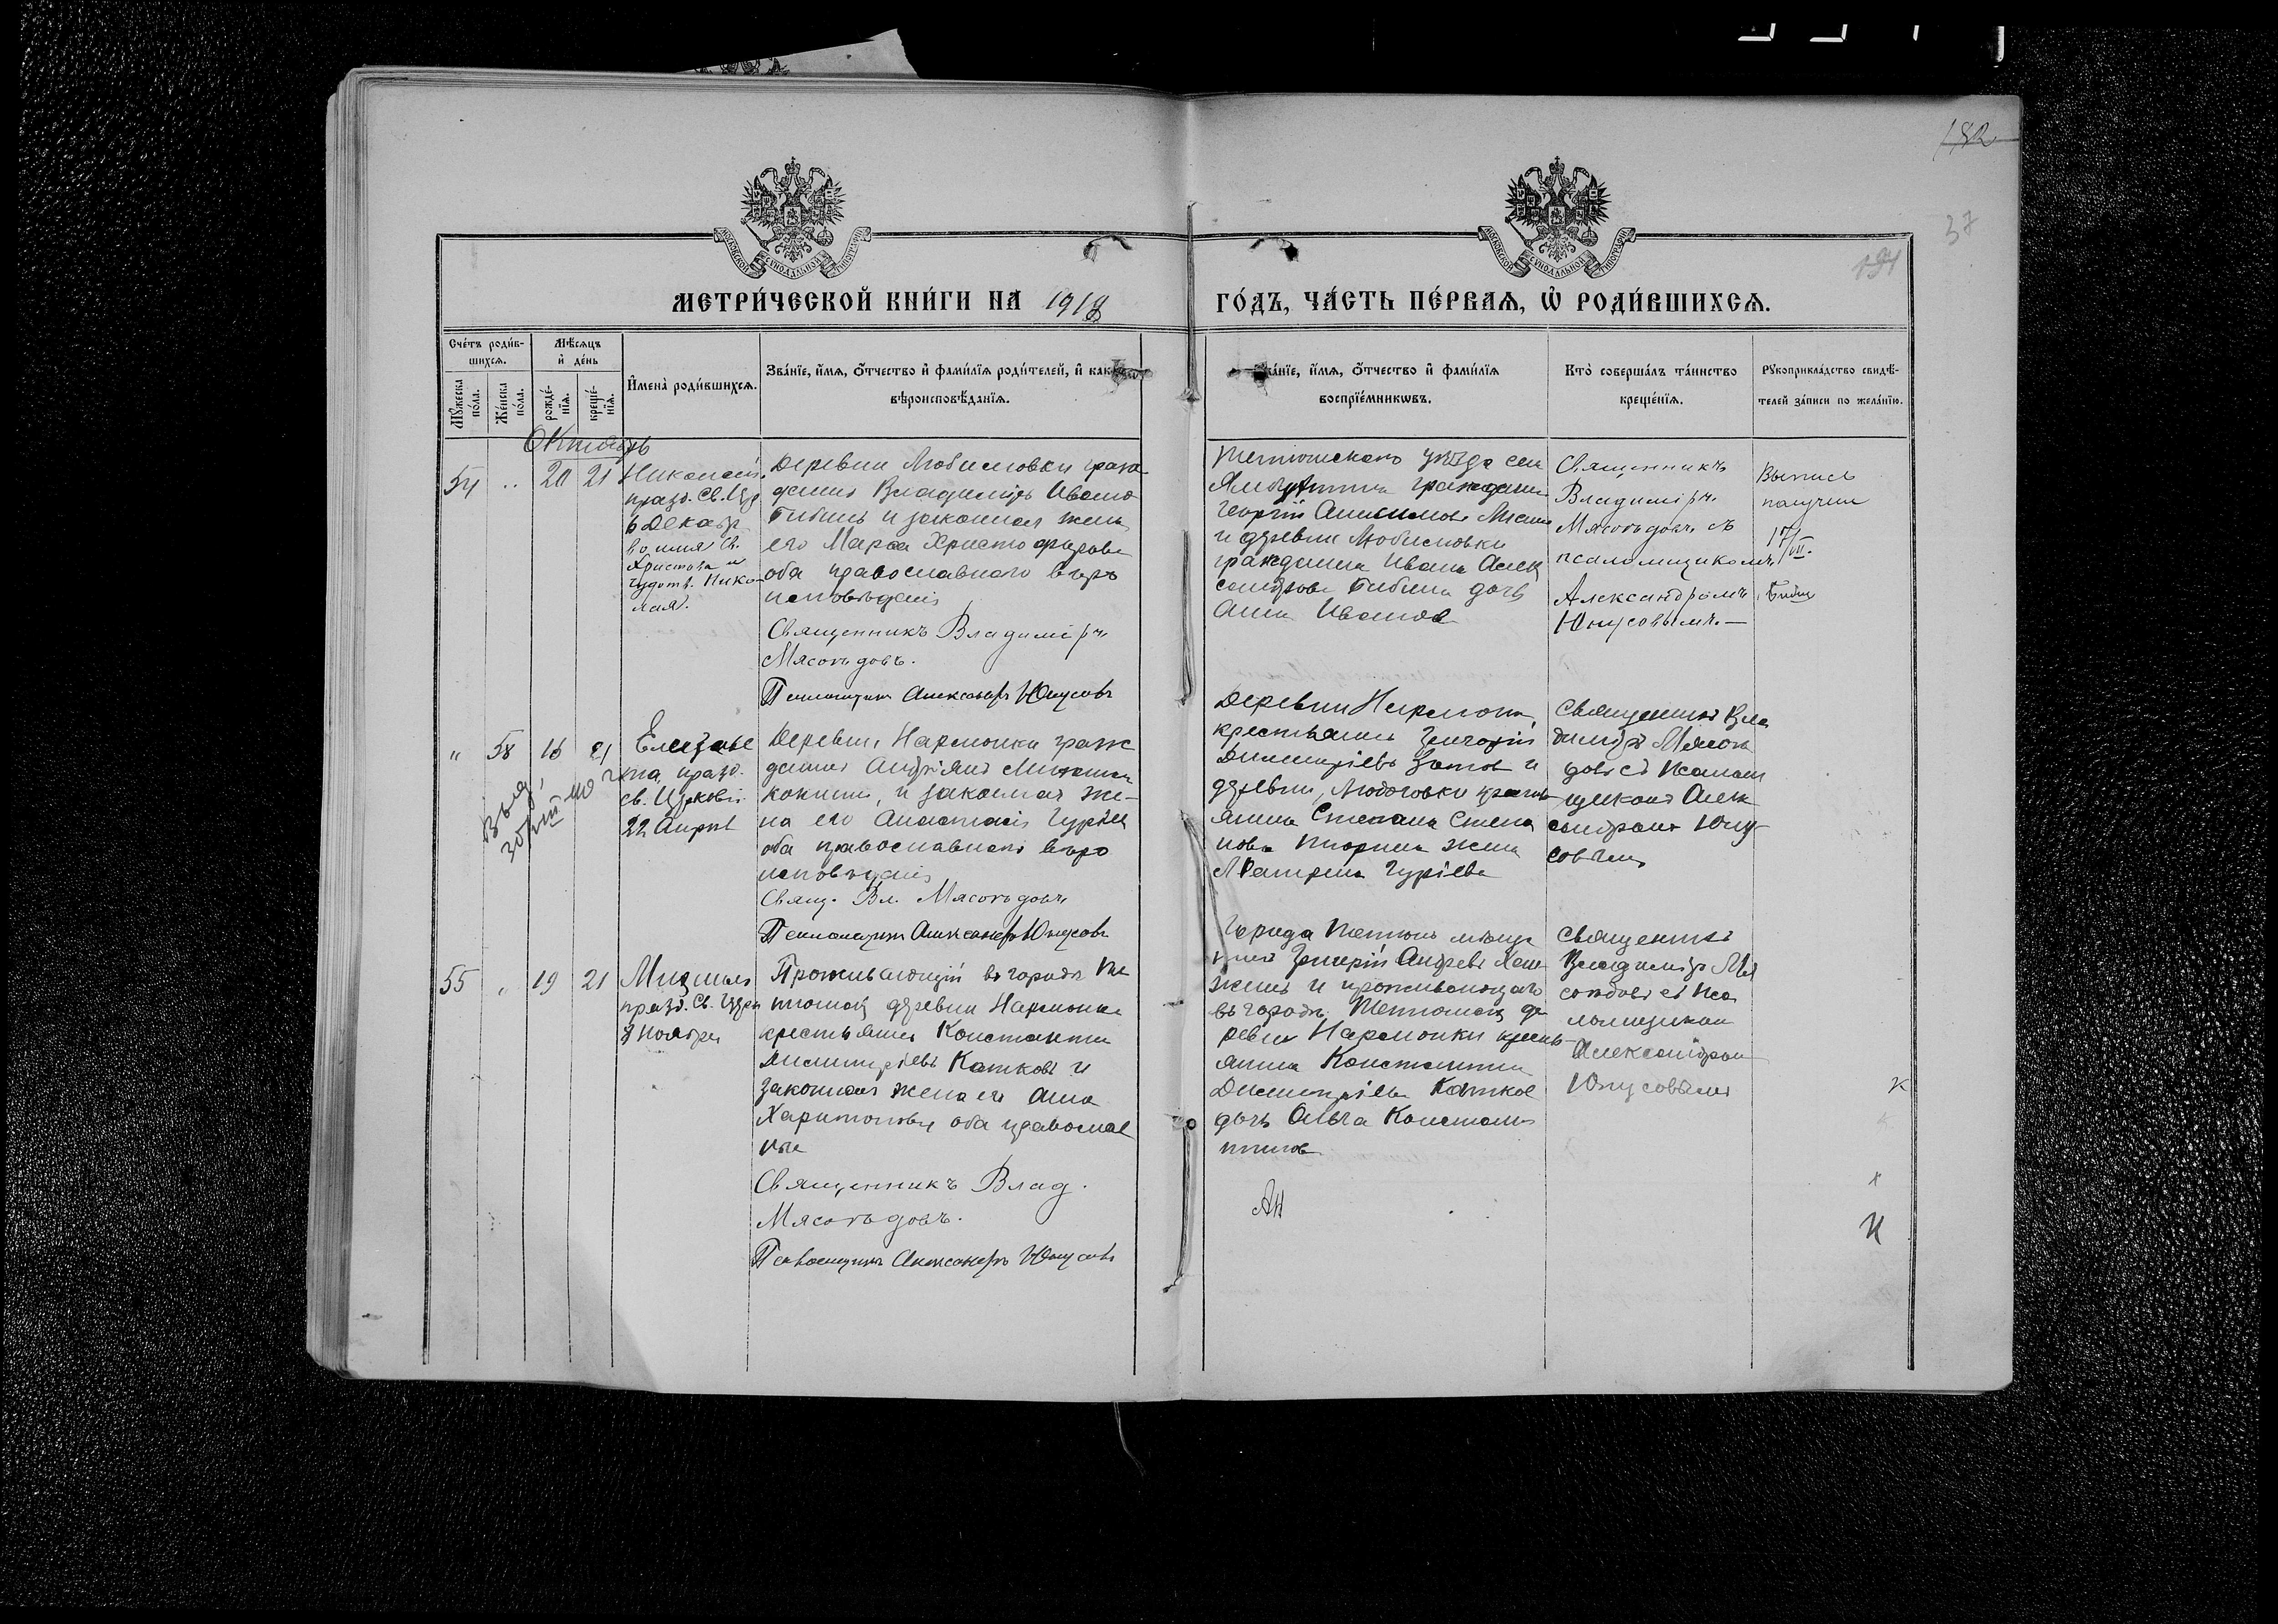 182
37
194
МОСКОВСКОЙ СѴНОДАЛЬНОЙ ТИПОГРАФІИ
МОСКОВСКОЙ СѴНОДАЛЬНОЙ ТИПОГРАФІИ
МЕТРИ́ЧЕСКОЙ КНИ́ГИ НА 1918
ГО́ДЪ, ЧА́СТЬ ПЕ́РВАѦ, Ѡ҆ РОДИ́ВШИХСѦ.
Сче́тъ роди́в-
шихсѧ.
Мѣ́сѧцъ
и҆ де́нь
Мꙋ́жеска
по́ла.
Же́нска
по́ла.
рожде́-
нїѧ.
креще́-
нїѧ.
И҆мена̀ роди́вшихсѧ.
Зва́нїе, и҆́мѧ, ѻ҆́тчество и҆ фами́лїѧ роди́телей, и҆ как
вѣроисповѣ́данїѧ.
ва́нїе, и҆́мѧ, ѻ҆́тчество и҆ фами́лїѧ
воспрїе́мникѡвъ.
Кто̀ соверша́лъ та́инство
креще́нїѧ.
Рꙋкоприкла́дство свидѣ́-
телей за́писи по жела́нїю.
Октябрь
54 " 20 21
Николай
празд. Св. Цер
6 Декабр
во имя Св.
Христова и
чудотв. Нико-
лая.
Деревни Любимовки граж
данинъ Владиміръ Ивано
Бибинъ и законная жена
его Марѳа Христофорова
оба православнаго вѣро
исповѣданія
Священникъ Владиміръ
Мясоѣдовъ.
Псаломщикъ Александръ Юнусовъ
Тетюшскаго уѣзда села
гражданинъ
Георгій Анисимовъ
и деревни Любимовки
гражданина Ивана Алек
сандрова Бибина дочь
Анна Иванова
Священникъ
Владиміръ
Мясоѣдовъ съ
псаломщикомъ
Александромъ
Юнусовымъ.—
Выпись
получил
17/VII.
Бибин
" 58 16 21
Елизаве
та, празд.
св. Церковію
22 Апрѣл
Деревни Нармонки граж
данинъ Андріянъ
и законная же-
на его Анастасія Гурьев
оба православнаго вѣро
исповѣданія
Свящ. Вл. Мясоѣдовъ
Псаломщикъ Александръ Юнусовъ
Деревни Нармонки
крестьянинъ Григорій
Димитріевъ Зотов и
деревни
Степана Степа
нова жена
Матрена Гуріева
Священникъ Вла
диміръ Мясоѣ
довъ съ псалом
щикомъ Алек
сандромъ Юну-
совымъ
55 " 19 21
Михаилъ
празд. Св. Церк
8 Ноября
Проживающій въ городѣ Те
тюшахъ деревни Нармонки
крестьянинъ Константинъ
Димитріевъ Катковъ и
законная жена его Анна
Харитонова оба православ
ные
Священникъ Влад.
Мясоѣдовъ.
Псаломщикъ Александръ Юнусовъ
Города Тетюшъ мѣща
нинъ Григорій Андреевъ
и проживающаго
въ городѣ Тетюшахъ де
ревни Нармонки кресть-
янина Константина
Димитріева Катков
дочь Ольга Констан
тинова
Священникъ
Владиміръ Мя
соѣдовъ съ Пса
ломщикомъ
Александромъ
Юнусовымъ